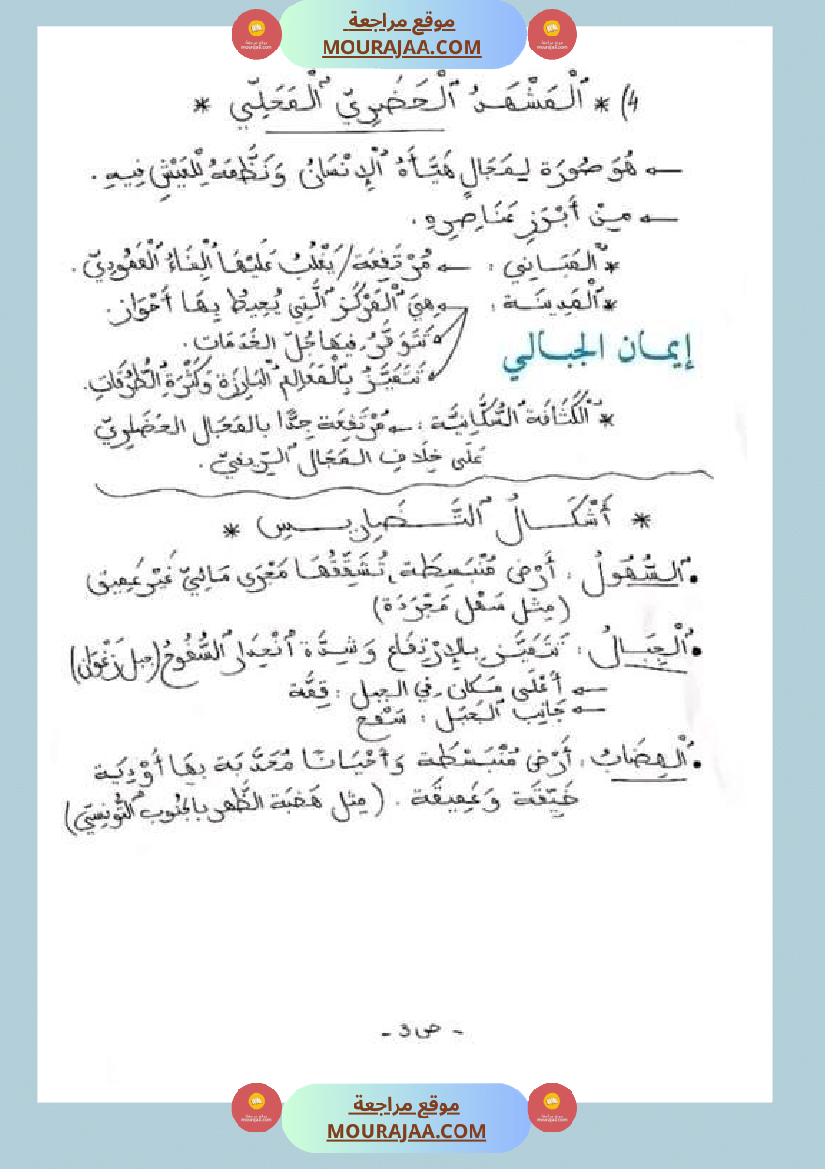 موقع مراجعة
MOURAJAA.COM
4) * ٱلْمَشْهَدُ ٱلْحَضَرِيّ ٱلْمَحَلِّي *
← هُوَ صُورَة لِمَجَالٍ هَيَّأَهُ ٱلْإِنْسَانُ وَنَظَّمَهُ لِلْعَيْشِ فِيهِ .
← مِنْ أَبْرَزِ عَنَاصِرِهِ .
* ٱلْمَبَانِي : ← مُرْتَفِعَة / يَغْلُبُ عَلَيْهَا ٱلْبِنَاءُ ٱلْعَمُودِيّ .
* ٱلْمَدِينَة : ← هِيَ ٱلْمَرْكَز الَّتِي يُحِيطُ بِهَا أَحْوَاز.
← تَتَوَفَّرُ فِيهَا جُلّ الخَدَمَات .
إيمان الجبالي
← تَتَمَيَّزُ بِٱلْمَعَالِم ٱلْبَارِزَة وَكَثْرَة ٱلطُّرُقَاتِ.
* ٱلْكَثَافَة السُّكَّانِيَّة : ← مُرْتَفِعَة جِدًّا بالمَجَال الحَضَرِيّ
عَلَى خِلَافِ المَجَال ٱلرِّيفيّ .
* أَشْكَــالُ التَّــضَارِيــس *
• السُّهُولُ : أَرْض مُنْبَسِطَة، تُشَقِّقُهَا مَجْرَى مَائِيّ غَيْر عَمِيق
(مِثل سَهْل مَجْرَدَة)
• ٱلْجِبَــالُ : تَتَمَيَّز بِالاِرْتِفَاع وَ شِدَّة ٱنْحِدَار السُّفُوحُ (جبل زَغْوَان)
← أَعْلَى مَكَان في الجبل : قِمَّة
← جَانِب الجَبَل : سَفْح
• ٱلْهِضَابُ : أَرْض مُنْبَسِطَة وَأَحْيَانًا مُحَدَّبَة بِهَا أَوْدِيَة
ضَيِّقَة وَعَمِيقَة . (مِثل هَضَبَة الظَّهر بالجنوب التُّونِسِيّ)
- ص 3 -
موقع مراجعة
MOURAJAA.COM